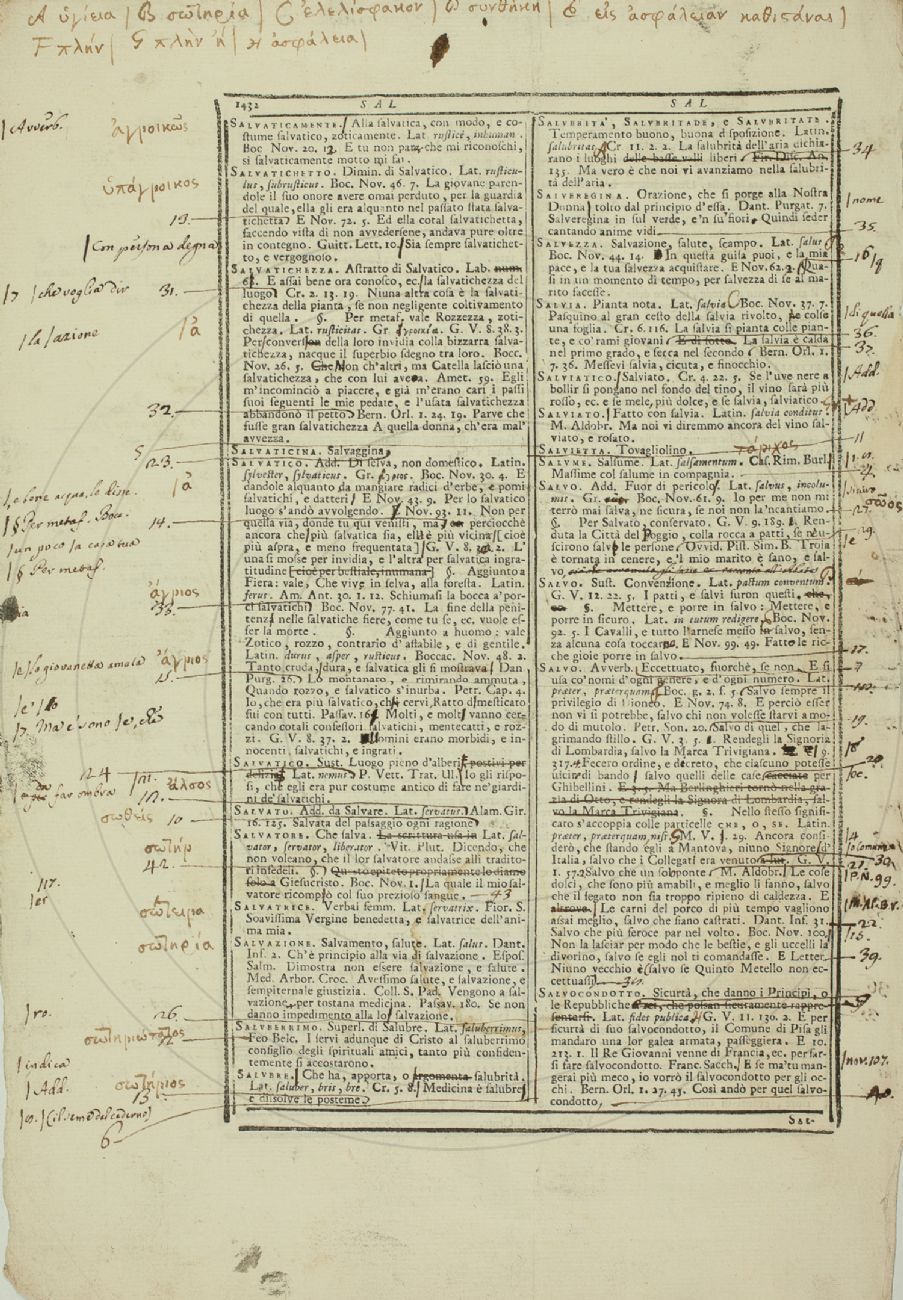 A ὑγίεια | B σωτηρία | C ἐλελίσφακον | D συνθήκη | E εἰς ἀσφάλειαν καθιστάναι |
F πλήν | G πλὴν ἢ | H ἀσφάλεια |
1432 SAL
SALVATICAMENTE. Alla salvatica, con modo, e co-
stume salvatico, zoticamente. Lat. rusticè, inhuman.
Boc Nov. 20. 12. E tu non pare che mi riconoschi,
sì salvaticamente motto mi fai.
SALVATICHETTO. Dimin. di Salvatico. Lat. rusticu-
lus, subrusticus. Boc. Nov. 46. 7. La giovane paren-
dole il suo onore avere omai perduto, per la guardia
del quale, ella gli era alquanto nel passato stata salva-
tichetta. E Nov. 72. 5. Ed ella cotal salvatichetta,
faccendo vista di non avvedersene, andava pure oltre
in contegno. Guitt. Lett. 10. Sia sempre salvatichet-
to, e vergognoso.
SALVATICHEZZA. Astratto di Salvatico. Lab.
E assai bene ora conosco, ec. la salvatichezza del
luogo. Cr. 2. 13. 19. Niuna altra cosa è la salvati-
chezza della pianta, se non negligente coltivamento
di quella. §. Per metaf. vale Rozzezza, zoti-
chezza. Lat. rusticitas. Gr. G. V. 8. 38. 3.
Per conversion della loro invidia colla bizzarra salva-
tichezza, nacque il superbio sdegno tra loro. Bocc.
Nov. 26. 5. Non ch'altri, ma Catella lasciò una
salvatichezza, che con lui avea. Amet. 59. Egli
m'incominciò a piacere, e già m'erano cari i passi
suoi seguenti le mie pedate, e l'usata salvatichezza
abbandonò il petto. Bern. Orl. 1. 24. 19. Parve che
fusse gran salvatichezza A quella donna, ch'era mal'
avvezza.
SALVATICINA. Salvaggina.
SALVATICO. Add. Di selva, non domestico. Latin.
silvester, silvaticus. Gr. Boc. Nov. 30. 4. E
dandole alquanto da mangiare radici d'erbe, e pomi
salvatichi, e datteri. E Nov. 43. 9. Per lo salvatico
luogo s'andò avvolgendo. Nov. 93. 11. Non per
quella via, donde tu qui venisti, ma perciocchè
ancora che più salvatica sia, ell è più vicina [cioè
più aspra, e meno frequentata] G. V. 8. L'
una si mosse per invidia, e l'altra per salvatica ingra-
titudine [cioè per bestiale, inumana]. §. Aggiunto a
Fiera: vale, Che vive in selva, alla foresta. Latin.
ferus. Am. Ant. 30. 1. 12. Schiumasi la bocca a'por-
ci salvatichi. Boc. Nov. 77. 41. La fine della peni-
tenza nelle salvatiche fiere, come tu se, ec. vuole es-
ser la morte. §. Aggiunto a huomo: vale
Zotico, rozzo, contrario d'affabile, e di gentile.
Latin. durus, asper, rusticus. Boccac. Nov. 48. 2.
Tanto cruda, dura, e salvatica gli si mostrava. Dan.
Purg. 26. Lo montanaro, e rimirando ammuta,
Quando rozzo, e salvatico s'inurba. Petr. Cap. 4.
Io, che era più salvatico, che i cervi, Ratto domesticato
fui con tutti. Passav. 161. Molti, e molti vanno cer-
cando cotali confessori salvatichi, mentecatti, e roz-
zi. G. V. 8. 37. 2. uomini erano morbidi, e in-
nocenti, salvatichi, e ingrati.
SALVATICO. Sust. Luogo pieno d'alberi postivi per
delizia. Lat. nemus. P. Vett. Trat. Ul. Io gli rispo-
si, che egli era pur costume antico di fare ne'giardi-
ni de'salvatichi.
SALVATO. Add. da Salvare. Lat. servatus. Alam. Gir.
16. 125. Salvata del passaggio ogni ragione.
SALVATORE. Che salva. La scrittura usa in Lat. sal-
vator, servator, liberator. Vit. Plut. Dicendo, che
non voleano, che il lor salvatore andasse alli tradito-
ri Infedeli. §. Questo epiteto propriamente lo diamo
solo a Giesucristo. Boc. Nov. 1. La quale il mio sal-
vatore ricomprò col suo prezioso sangue.
SALVATRICE. Verbal femm. Lat. servatrix. Fior. S.
Soavissima Vergine benedetta, e salvatrice dell'ani-
ma mia.
SALVAZIONE. Salvamento, salute. Lat. salus. Dant.
Inf. 2. Ch'è principio alla via di salvazione. Espos.
Salm. Dimostra non essere salvazione, e salute.
Med. Arbor. Croc. Avessimo salute, e salvazione, e
sempiternale giustizia. Coll. S. Pad. Vengono a sal-
vazione, per tostana medicina. Passav. 180. Se non
danno impedimento alla lor salvazione.
SALUBERRIMO. Superl. di Salubre. Lat. saluberrimus.
Feo Belc. I servi adunque di Cristo al saluberrimo
consiglio degli spirituali amici, tanto più confiden-
temente si accostarono.
SALUBRE. Che ha, apporta, o salubrità.
Lat. saluber, bris, bre. Cr. 5. 8. Medicina è salubre
e dissolve le posteme.
SAL
SALUBRITA', SALUBRITADE, e SALUBRITATE.
Temperamento buono, buona disposizione. Latin.
salubritas. Cr 11. 2. 2. La salubrità dell'aria dichia-
rano i luoghi delle basse valli liberi. Fir. Disc. An.
135. Ma vero è che noi vi avanziamo nella salubri-
tà dell'aria.
SALVEREGINA. Orazione, che si porge alla Nostra
Donna, tolto dal principio d'essa. Dant. Purgat. 7.
Salveregina in sul verde, e'n su'fiori, Quindi seder
cantando anime vidi.
SALVEZZA. Salvazione, salute, scampo. Lat. salus.
Boc. Nov. 44. 14. In questa guisa puoi, e la mia
pace, e la tua salvezza acquistare. E Nov. 62. 2. Qua-
si in un momento di tempo, per salvezza di se al ma-
rito facesse.
SALVIA. Pianta nota. Lat. salvia. Boc. Nov. 37. 7.
Pasquino al gran cesto della salvia rivolto, ne colse
una foglia. Cr. 6. 116. La salvia si pianta colle pian-
te, e co'rami giovani. E di sotto. La salvia è calda
nel primo grado, e secca nel secondo. Bern. Orl. 1.
7. 36. Messevi salvia, cicuta, e finocchio.
SALVIATICO. Salviato. Cr. 4. 22. 5. Se l'uve nere a
bollir si pongano nel fondo del tino, il vino sarà più
rosso, ec. e se mele, più dolce, e se salvia, salviatico.
SALVIATO. Fatto con salvia. Latin. salvia conditus.
M. Aldobr. Ma noi vi diremmo ancora del vino sal-
viato, e rosato.
SALVIETTA. Tovagliolino.
SALUME. Salsume. Lat. salsamentum. Cas. Rim. Burl.
Massime col salume in compagnia.
SALVO. Add. Fuor di pericolo. Lat. salvus, incolu-
mis. Gr. Boc. Nov. 61. 9. Io per me non mi
terrò mai salva, ne sicura, se noi non la'ncantiamo.
§. Per Salvato, conservato. G. V. 9. 189. Ren-
duta la Città del Poggio, colla rocca a patti, se neu-
scirono salve le persone. Ovvid. Pist. Sim. B. Troia
è tornata in cenere, e'l mio marito è sano, e sal-
vo,
SALVO. Sust. Convenzione. Lat. pactum conventum.
G. V. 12. 22. 5. I patti, e salvi furon questi.
§. Mettere, e porre in salvo: Mettere, e
porre in sicuro. Lat. in tutum redigere. Boc. Nov.
92. 5. I Cavalli, e tutto l'arnese messo in salvo, sen-
za alcuna cosa toccarne, E Nov. 99. 49. Fatto le ric-
che gioie porre in salvo.
SALVO. Avverb. Eccettuato, fuorchè, se non. E si
usa co'nomi d'ogni genere, e d'ogni numero. Lat.
præter, præterquam. Boc. g. 2. f. 5. Salvo sempre il
privilegio di Dioneo. E Nov. 74. 8. E perciò esser
non vi si potrebbe, salvo chi non volesse starvi a mo-
do di mutolo. Petr. Son. 20. Salvo di quel, che la-
grimando stillo. G. V. 3. 5. Rendegli la Signoria
di Lombardia, salvo la Marca Trivigiana. E 9.
317. Fecero ordine, e decreto, che ciascuno potesse
uscir di bando, salvo quelli delle case cacciate per
Ghibellini. E 3. 5. Ma Berlinghieri tornò nella gra-
zia di Otto, e rendegli la Signora di Lombardia, sal-
vo la Marca Trivigiana. §. Nello stesso signifi-
cato s'accoppia colle particelle CHE, O, SE. Latin.
præter, præterquam, nisi. M. V. 1. 29. Ancora consi-
derò, che stando egli a Mantova, niuno Signore d'
Italia, salvo che i Collegati era venuto a lui. G. V.
1. 57. 2. Salvo che un sol ponte. M. Aldobr. Le cose
dolci, che sono più amabili, e meglio si fanno, salvo
che il fegato non sia troppo ripieno di caldezza. E
altrove. Le carni del porco di più tempo vagliono
assai meglio, salvo che sieno castrati. Dant. Inf. 31.
Salvo che più feroce par nel volto. Boc. Nov. 100.
Non la lasciar per modo che le bestie, e gli uccelli la
divorino, salvo se egli nol ti comandasse. E Letter.
Niuno vecchio è, salvo se Quinto Metello non ec-
cettuassi.
SALVOCONDOTTO. Sicurtà, che danno i Principi, o
le Repubbliche
Lat. fides publica. G. V. 11. 130. 2. E per
sicurtà di suo salvocondotto, il Comune di Pisa gli
mandaro una lor galea armata, passeggiera. E 10.
213. 1. Il Re Giovanni venne di Francia, ec. per far-
si fare salvocondotto. Franc. Sacch. E se ma'tu man-
gerai più meco, io vorrò il salvocondotto per gli oc-
Bern. Orl. 1. 27. 45. Così andò per quel salvo-
condotto,
Sal-
| Avverb.
ἀγροικῶς
ὑπάγροικος
13.
| Con persona degna
| che voglia dir 31.
| la | azione
32.
23.
| § Per metaf. Boc.
14.
| § Per metaf.
ἄγριος
33.
ἄγριος
24
ἄλσος
| far ombra
σωθείς
10
σωτήρ
42.
117.
σώτειρα
σωτηρία
| ro. 26.
| indica
| Add. σωτήριος
15
6
43
34
| nome
35.
16
| di quella
36.
37.
| Add.
| Add
τάριχος
11
σῶος
29.
17.
7
19.
20
39
| P. N. 99.
22
39.
30
| nov. 107.
40.